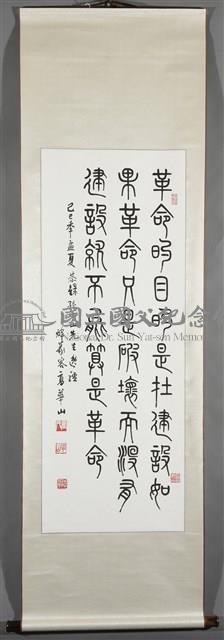 革命的目的是在建設如
果革命只是破壞而沒有
建設就不能算是革命
己巳年孟夏恭錄
華山
國立國父紀念館
National Dr. Sun Yat-sen Memo